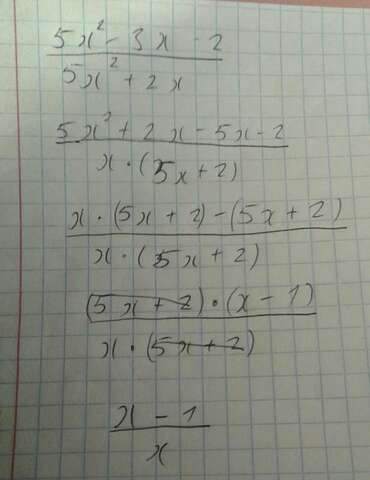 5x² - 3x - 2
5x² + 2x
5x² + 2x - 5x - 2
x · (5x + 2)
x · (5x + 2) - (5x + 2)
x · (5x + 2)
(5x + 2) · (x - 1)
x · (5x + 2)
x - 1
x